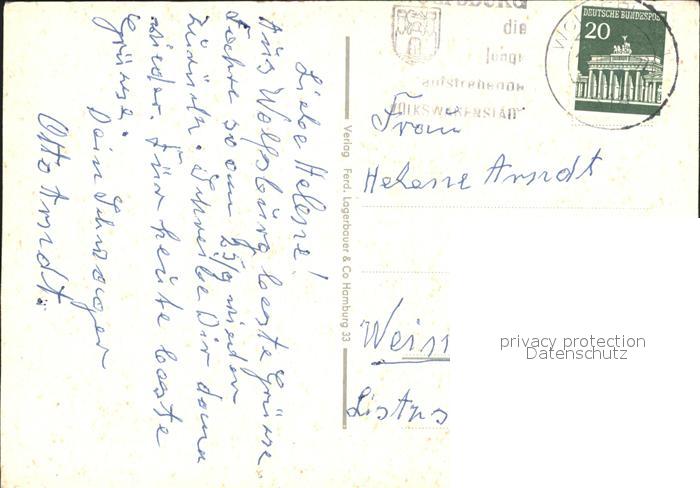 Liebe Helene!
Aus Wolfsburg beste Grüsse
Fahre so am 25/9 wieder
zurück. Schreibe Dir dann
wieder. Für heute beste
Grüsse.
Dein Schwager
Otto Arndt.
Verlag Ferd. Lagerbauer & Co Hamburg 33
die
junge
aufstrebende
VOLKSWAGENSTADT
DEUTSCHE BUNDESPOST
20
Frau
Helene Arndt
Weiss
privacy protection
Datenschutz